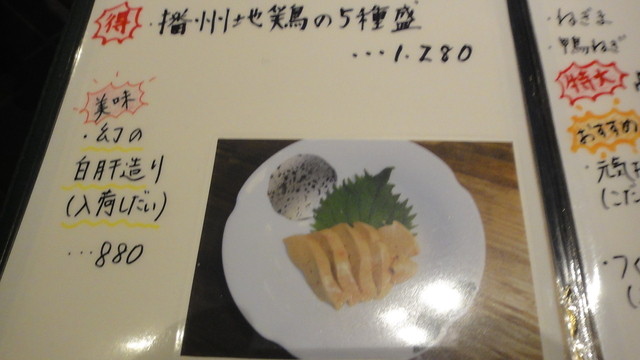 得 ・播州地鶏の5種盛
…1.280
美味
・幻の
白肝造り
(入荷しだい)
…880
・ねぎま
・鴨ねぎ
特大
おすすめ